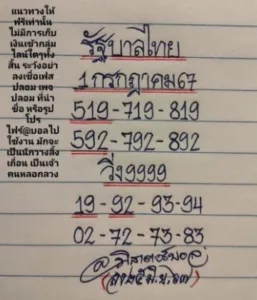 แนวทางให้
ฟรีเท่านั้น
ไม่มีการเก็บ
เงินเข้ากลุ่ม
ไลน์ใดๆทั้ง
สิ้น ระวังอย่า
ลงเชื่อเฟส
ปลอม เพจ
ปลอม ที่นำ
ชื่อ หรือรูป
โปร
ไฟร์@บอลไป
ใช้งาน มักจะ
เป็นนักวางสิ่ง
เกื่อน เป็นเจ้า
คนหลอกลวง
รัฐบาลไทย
1 กรกฎาคม 67
519-719-819
592-792-892
วิ่ง 9999
19-92-93-94
02-72-73-83